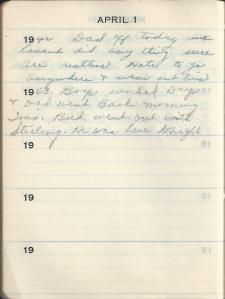 APRIL 1
1942 Dad off today we
havent did any thing sure
are restless. Hate to go
anywhere & wear out tires
1943. Boys worked Days
& Dad went Back morning
Tour. Bud went out with
Sterling. He was here tonight
19
19
19